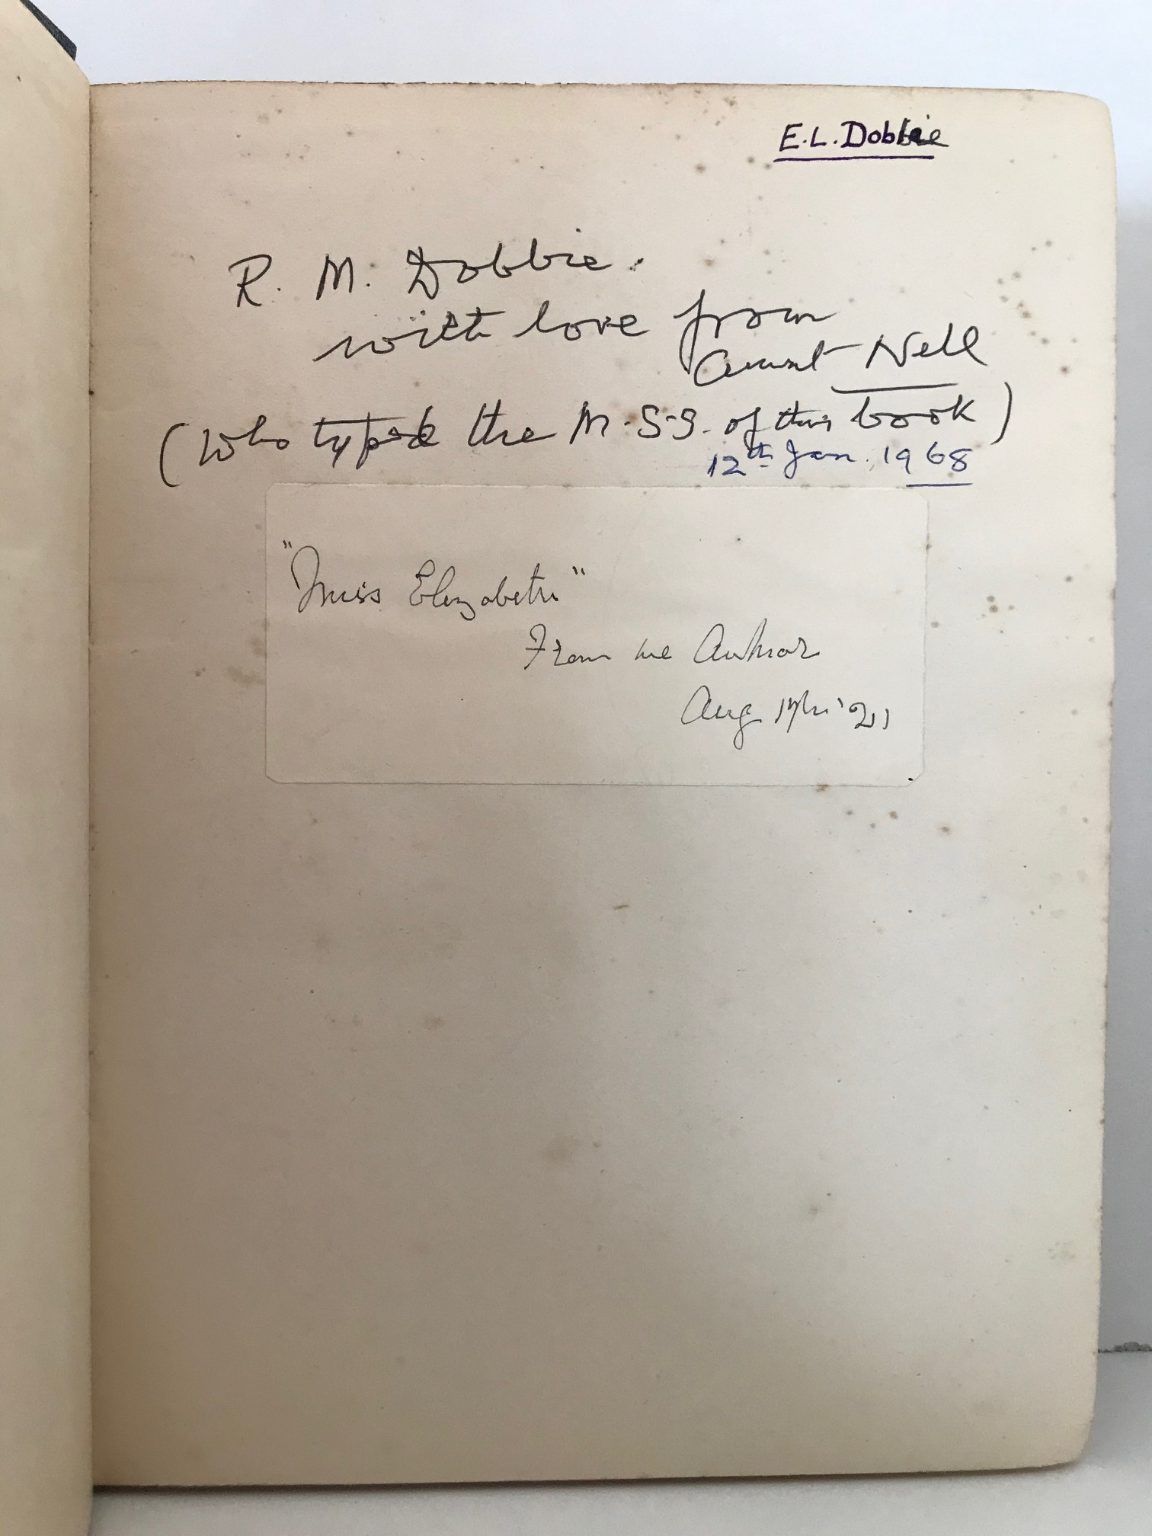 E.L. Dobbie
R. M. Dobbie.
with love from
Aunt Nell
(who typed the M.S.S. of this book)
12th Jan. 1968
"Miss Elizabeth"
From the Author
Aug 17th '21